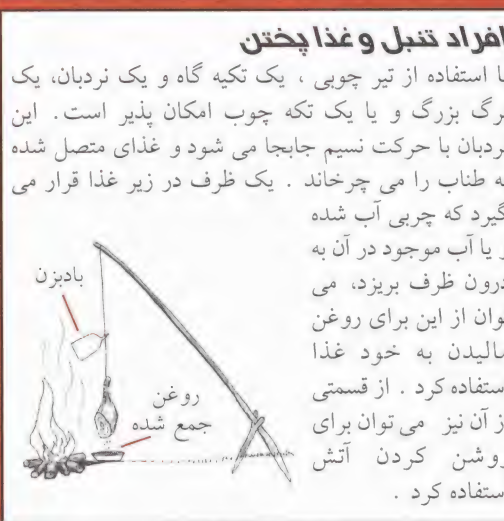 افراد تنبل و غذا پختن
با استفاده از تیر چوبی ، یک تکیه گاه و یک نردبان، یک
برگ بزرگ و یا یک تکه چوب امکان پذیر است. این
نردبان با حرکت نسیم جابجا می شود و غذای متصل شده
به طناب را می چرخاند . یک ظرف در زیر غذا قرار می
گیرد که چربی آب شده
و یا آب موجود در آن به
درون ظرف بریزد، می
توان از این برای روغن
مالیدن به خود غذا
استفاده کرد . از قسمتی
از آن نیز می توان برای
روشن کردن آتش
استفاده کرد .
بادبزن
روغن
جمع شده